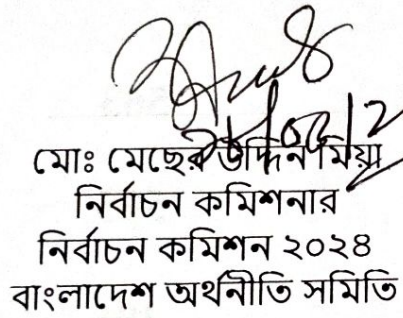 মোঃ মেছের উদ্দিন মিয়া
নির্বাচন কমিশনার
নির্বাচন কমিশন ২০২৪
বাংলাদেশ অর্থনীতি সমিতি